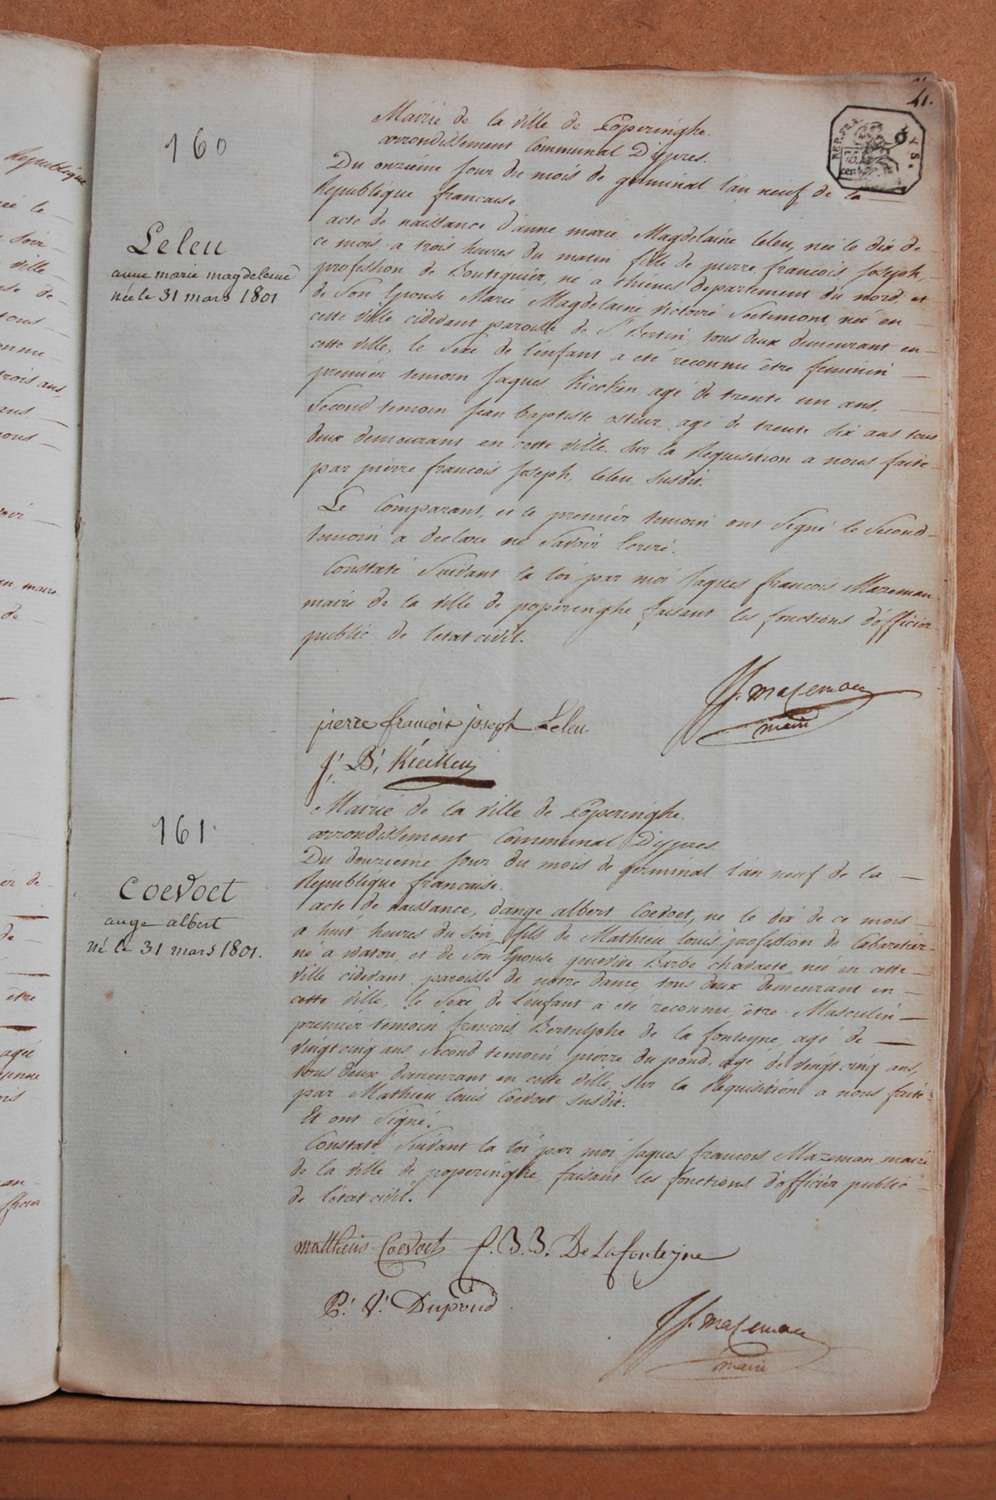 41.
160
Mairie de la ville de Poperinghe
arrondissement Communal D'ypres.
Du onzième jour du mois de germinal l'an neuf de la
Republique francaise
Leleu
anne marie magdeleine
née le 31 mars 1801
acte de naissance d'anne marie Magdelaine leleu, née le dix de
ce mois a trois heures du matin fille de pierre francois Joseph,
profession de Boutiquier, né a thienes departement du nord et
de Son Epouse Marie Magdelaine victoire née en
cette ville cidevant paroisse de St Bertin, tous deux demeurant en
cette ville, le Sexe de l'enfant a été reconnu être feminin
premier temoin Jaques agé de trente un ans,
Second temoin jean baptiste agé de trente dix ans tous
deux demeurant en cette ville. Sur la Requisition a nous faite
par pierre francois Joseph leleu susdit.
Le Comparant, et le premier temoin ont Signé le Second
temoin a declaré ne Savoir
Constaté Suivant la loi par moi Jaques francois Mazeman
maire de la ville de poperinghe faisant les fonctions d'officier
public de l'etat civil.
J. f. mazeman
maire
pierre francois joseph Leleu
j. B.
161.
Mairie de la ville de Poperinghe.
arrondissement Communal D'ypres
Du douzieme jour du mois de germinal l'an neuf de la
Republique francaise.
Coevoet
ange albert
né le 31 mars 1801.
acte de naissance, d'ange albert Coevoet, né le dix de ce mois
a huit heures du Soir, fils de Mathieu louis profession de Cabaretier
né a Watou, et de Son Epouse genevive Barbe née en cette
ville cidevant paroisse de notre dame, tous deux demeurant en
cette ville, le Sexe de l'enfant a été reconnu être Masculin
premier temoin francois Bertulphe de la fonteyne agé de
vingtcinq ans Second temoin pierre du pond. agé de vingt cinq ans,
tous deux demeurant en cette ville Sur la Requisition a nous faite
par Mathieu louis Coevoet susdit.
Et ont Signé.
Constaté Suivant la loi par moi Jaques francois Mazeman maire
de la ville de poperinghe faisant les fonctions d'officier public
de l'etat civil.
mattheus Coevoet f. B. B. De Lafonteyne
P. J. Dupond
J. f. mazeman
maire